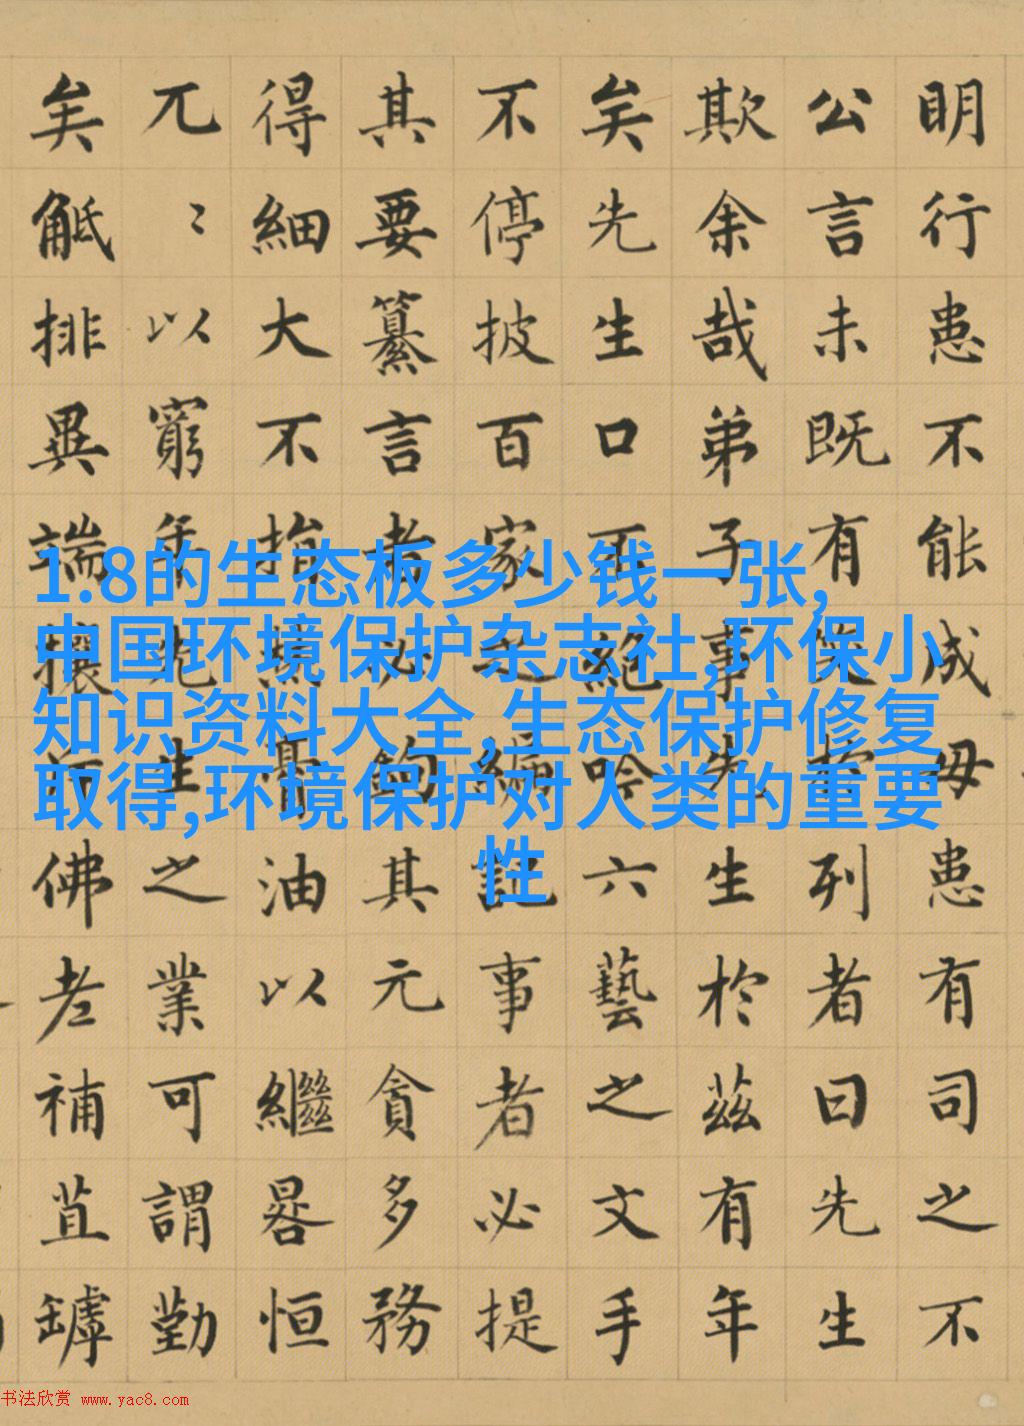 明行患不能成毋患有司之不
公言未既有笑於列者曰先生
欺余哉弟子事先生於茲有年
矣先生口不絕吟六藝之文手
不停披百家之編記事者必提
其要纂言者必鉤其元貪多務
得細大不捐焚膏油以繼晷恒
兀〻以窮年先生之業可謂勤
矣觝排異端攘斥佛老補苴罅
1.8的生态板多少钱一张,
中国环境保护杂志社,环保小
知识资料大全,生态保护修复
取得,环境保护对人类的重要
性
书法欣赏 www.yac8.com